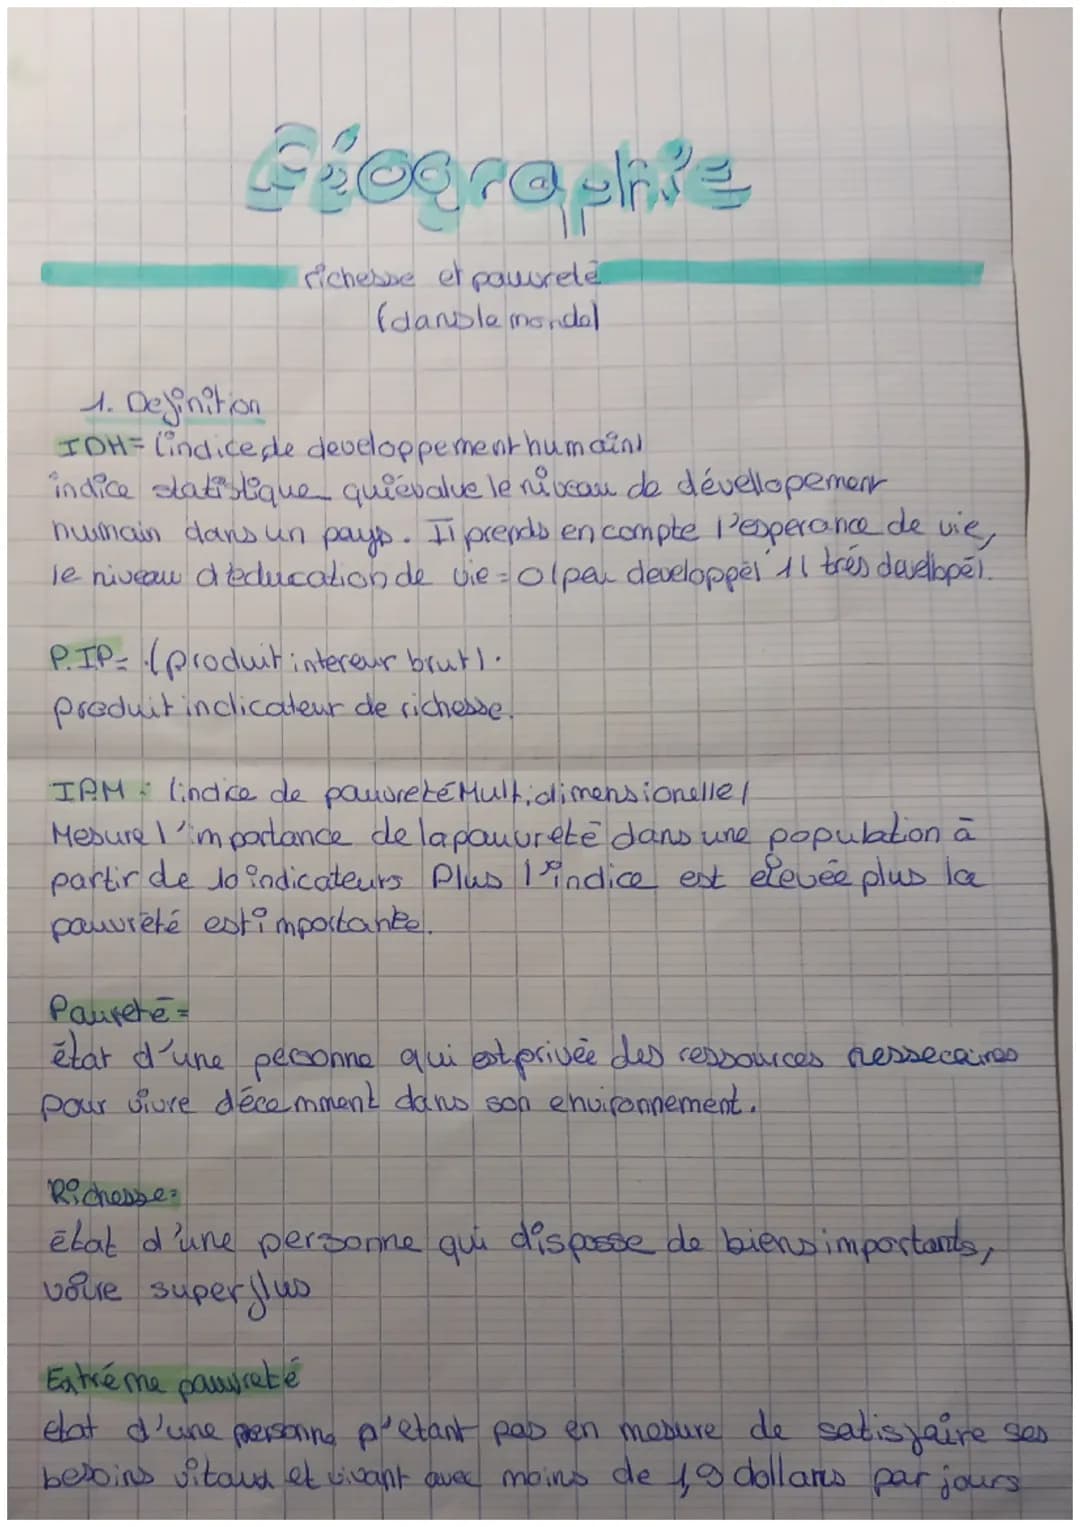 Géographie
richesse et pauvreté
(dans le monde)
1. Definition
IDH= (indice de developpement humain)
indice statistique qui évalue le niveau de dévellopement
humain dans un pays. Il prends en compte l'esperance de vie,
le niveau d'éducation de vie = 0(peu developpé) 1( trés developpé).
P.IP= (produit intereur brut).
produit indicateur de richesse.
IPM : (indice de pauvreté Multidimensionelle)
Mesure l'importance de la pauvreté dans une population à
partir de 10 indicateurs Plus l'indice est élevée plus la
pauvreté est importante.
Pauvreté =
état d'une personne qui est privée des ressources nessecaires
pour vivre décemment dans son environnement.
Richesse=
état d'une personne qui dispose de biens importants,
voire superflus
Extréme pauvreté
etat d'une personne n'etant pas en mesure de satisfaire ses
besoins vitaux et vivant avec moins de 1,9 dollars par jours